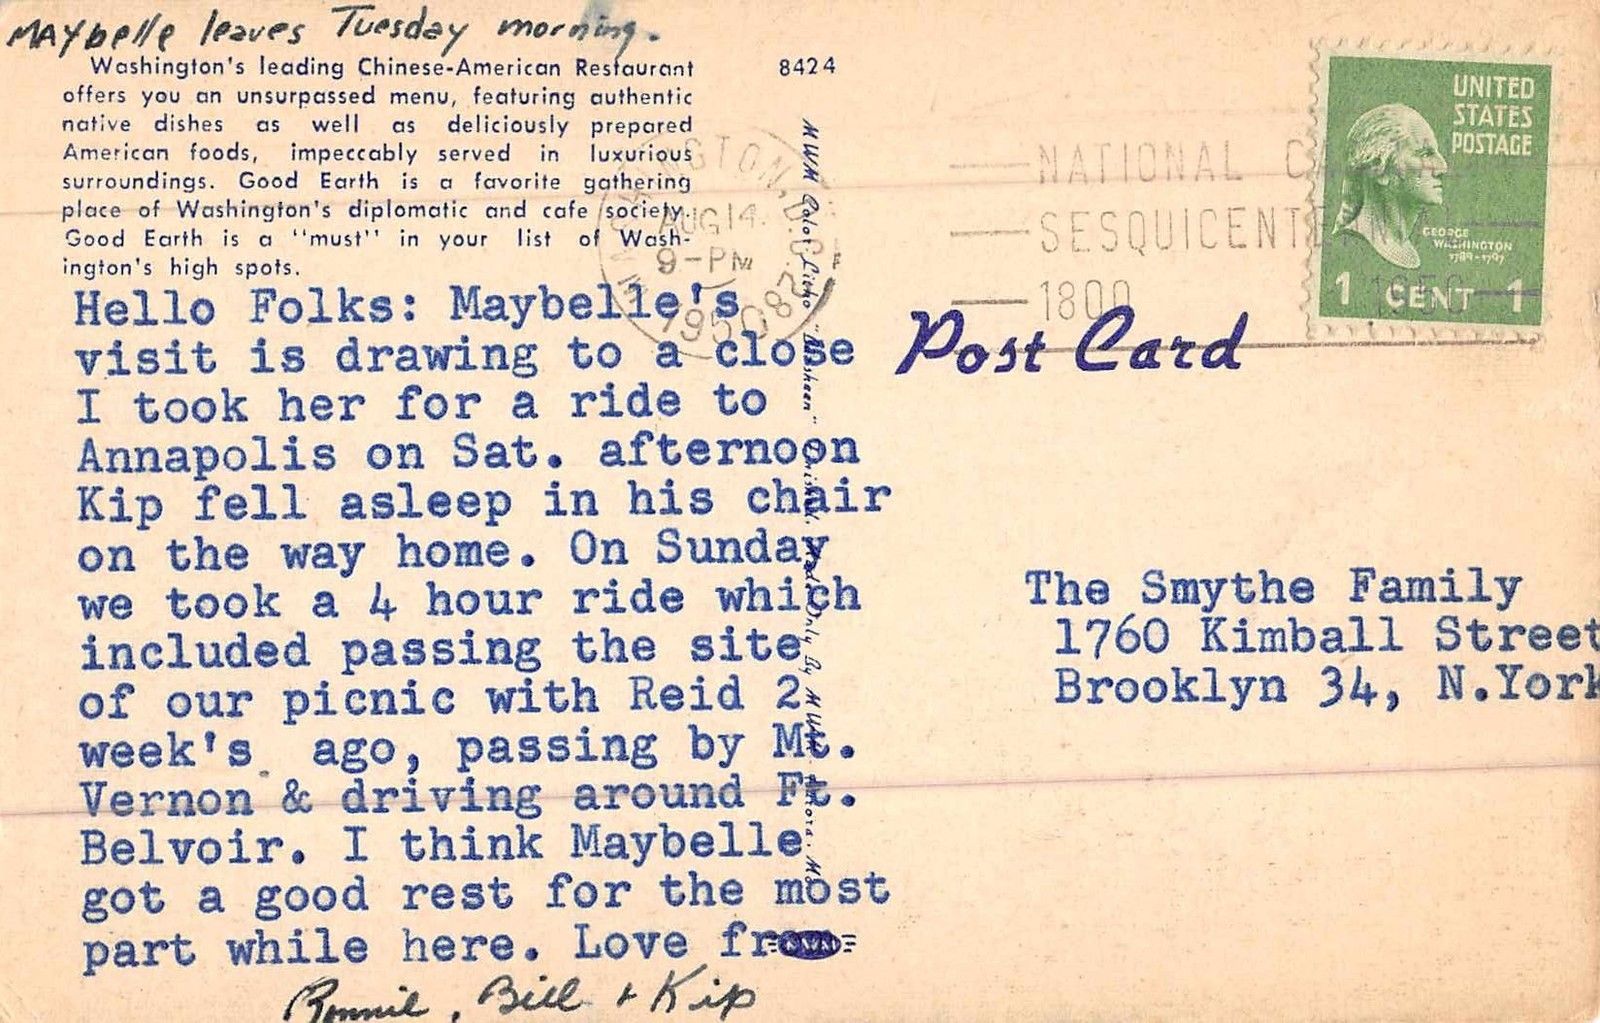 Maybelle leaves Tuesday morning.
Washington's leading Chinese-American Restaurant
offers you an unsurpassed menu, featuring authentic
native dishes as well as deliciously prepared
American foods, impeccably served in luxurious
surroundings. Good Earth is a favorite gathering
place of Washington's diplomatic and cafe society.
Good Earth is a "must" in your list of Wash-
ington's high spots.
8424
AUG 14
9-PM
1950
NATIONAL
SESQUICENTENNIAL
1800 1950
UNITED
STATES
POSTAGE
GEORGE
WASHINGTON
1789-1797
1 CENT 1
Post Card
Hello Folks: Maybelle's
visit is drawing to a close
I took her for a ride to
Annapolis on Sat. afternoon
Kip fell asleep in his chair
on the way home. On Sunday
we took a 4 hour ride which
included passing the site
of our picnic with Reid 2
week's ago, passing by Mt.
Vernon & driving around Ft.
Belvoir. I think Maybelle
got a good rest for the most
part while here. Love from
Bonnie, Bill + Kip
MWM Color-Litho Made Only By MWM
MWM
The Smythe Family
1760 Kimball Street
Brooklyn 34, N.York